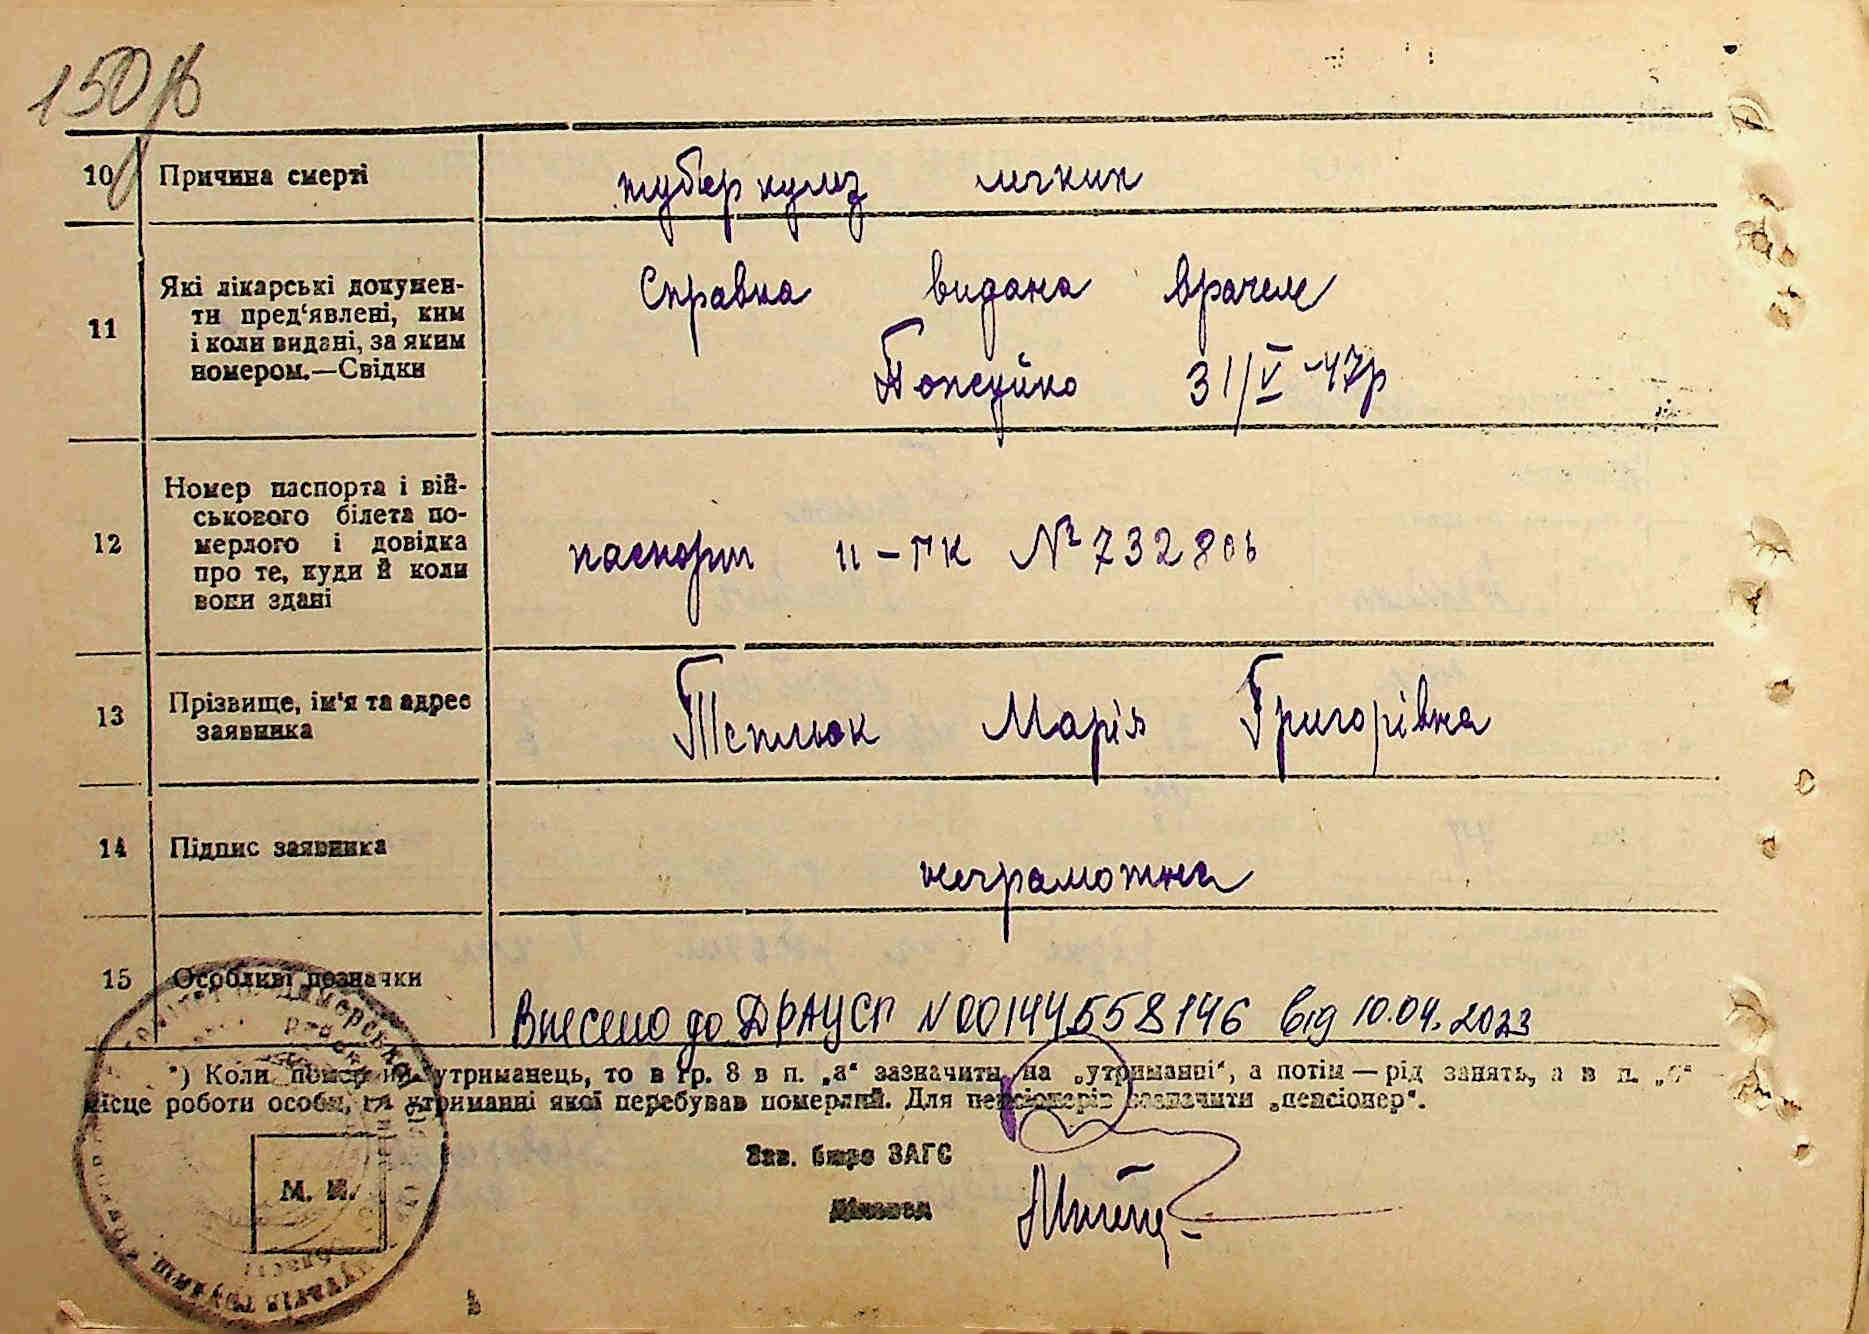 150 
10 Причина смерті туберкулез легких
11 Які лікарські докумен-
ти пред'явлені, ким
і коли видані, за яким
номером.—Свідки
Справка видана врачем
31/V-47р
12 Номер паспорта і вій-
ськового білета по-
мерлого і довідка
про те, куди й коли
вони здані
паспорт II-ПК № 732806
13 Прізвище, ім'я та адрес
заявника
Теплюк Марія Григорівна
14 Підпис заявника
неграмотна
15 Особливі позначки
Внесено до ДРАЦСГ №00144558146 від 10.04.2023
*) Коли помер утриманець, то в гр. 8 в п. „а“ зазначити на „утриманні“, а потім — рід занять, а в п.
місце роботи особи, на утриманні якої перебував померлий. Для пенсіонерів зазначити „пенсіонер“.
Зав. бюро ЗАГС
М. П.
Діловод